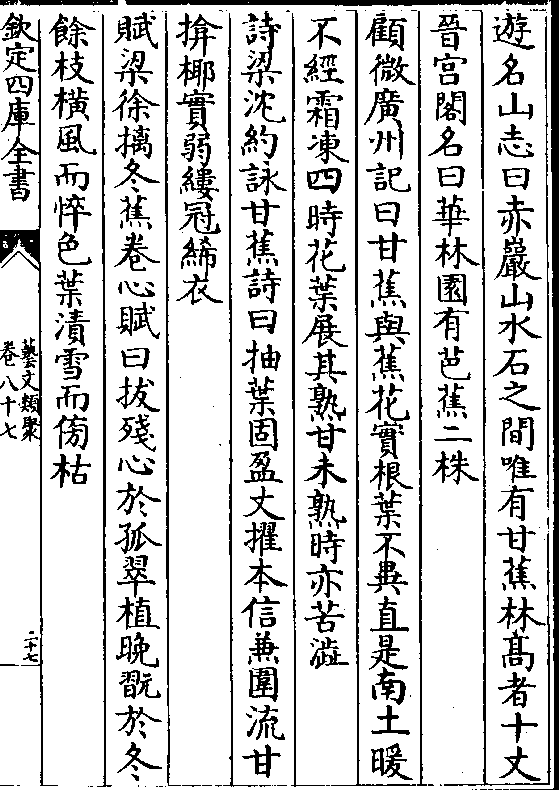 遊名山志曰赤巖山水石之間唯有甘蕉林髙者十丈
晉宫閣名曰華林園有芭蕉二株
顧微廣州記曰甘蕉與蕉花實根葉不異直是南土暖
不經霜凍四時花葉展其熟甘未熟時亦苦澁
詩梁沈約詠甘蕉詩曰抽葉固盈丈擢本信兼圍流甘
揜椰實弱縷冠絺衣
賦梁徐摛冬蕉卷心賦曰拔殘心於孤翠植晚翫於冬
餘枝横風而悴色葉漬雪而傍枯
欽定四庫全書
藝文類聚
卷八十七
二十七